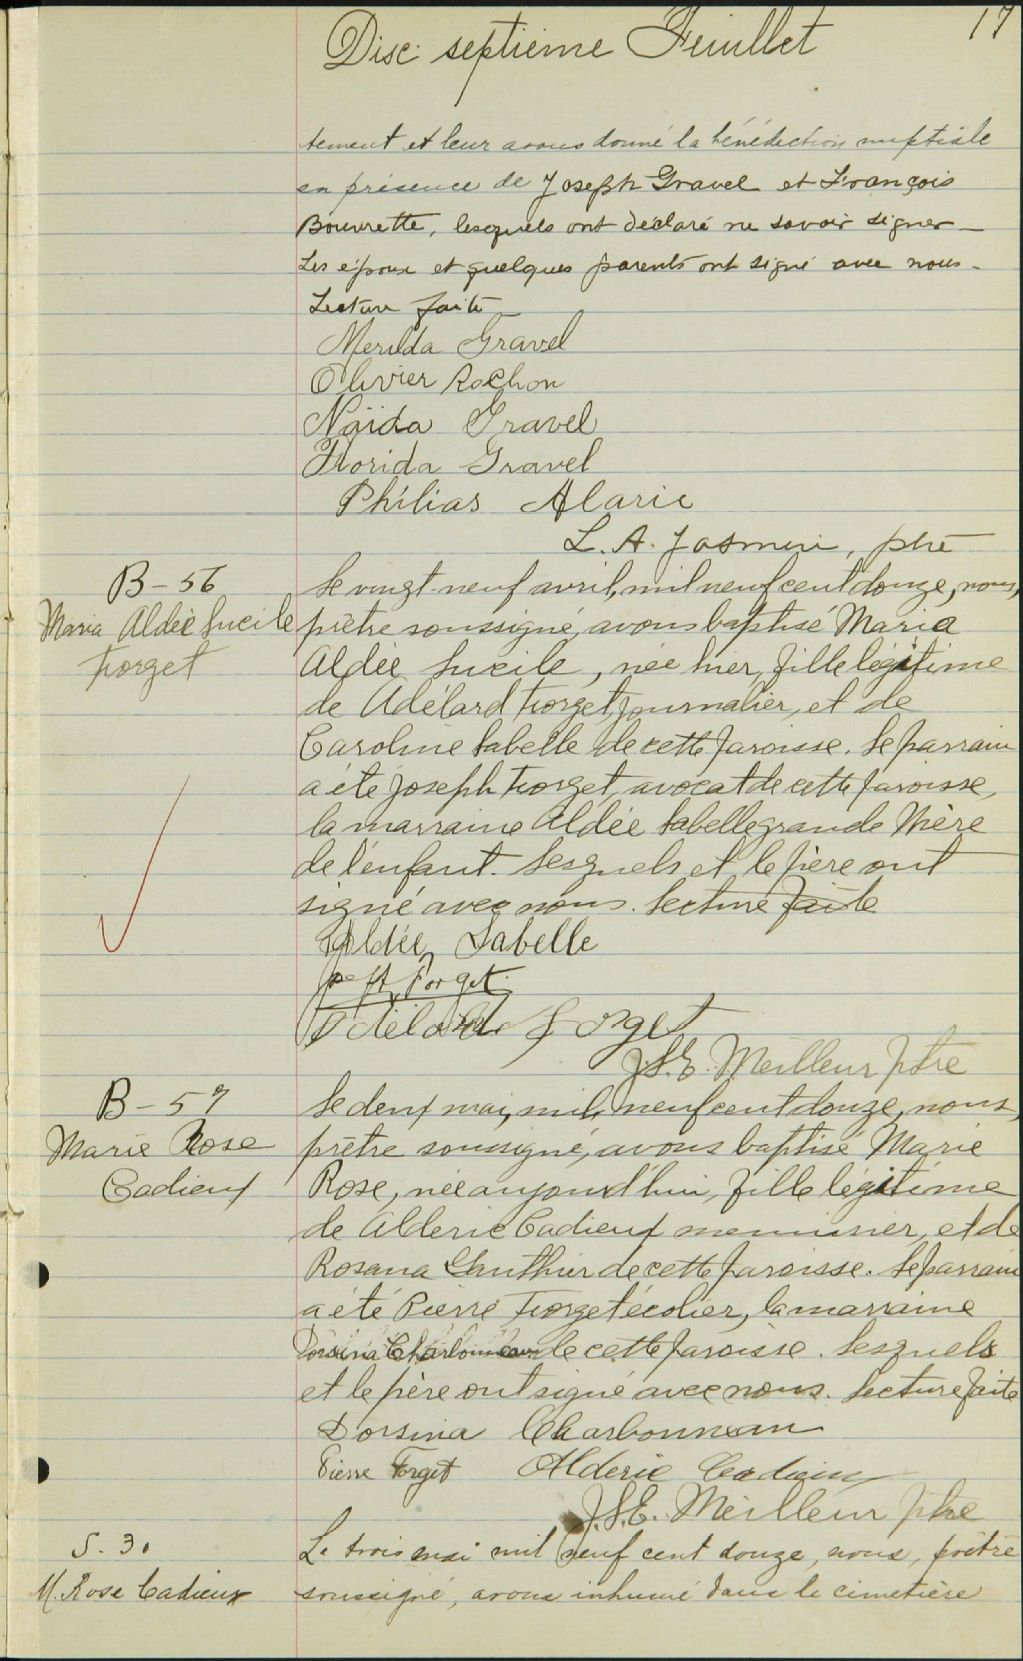 17
Dix-septième Feuillet
tement et leur avons donné la bénédiction nuptiale
en présence de Joseph Gravel et François
Bouvrette, lesquels ont déclaré ne savoir signer _
Les époux et quelques parents ont signé avec nous -
Lecture faite
Merilda Gravel
Olivier Rochon
Naïda Gravel
Florida Gravel
Philias Alarie
L. A. Jasmin, ptre
B - 56
Maria Aldée Lucile
Forget
Le vingt-neuf avril, mil neuf cent douze, nous,
prêtre soussigné, avons baptisé Maria
Aldée Lucile, née hier, fille légitime
de Adélard Forget, journalier, et de
Caroline Labelle de cette paroisse. Le parrain
a été Joseph Forget, avocat de cette paroisse,
la marraine Aldée Labelle grande Mère
de l'enfant. Lesquels et le père ont
signé avec nous. Lecture faite
Aldée Labelle
Jos H. Forget
Adélard Forget
J.S.E. Meilleur ptre
B - 57
Marie Rose
Cadieux
Le deux mai, mil neuf cent douze, nous,
prêtre soussigné, avons baptisé Marie
Rose, née aujourd'hui, fille légitime
de Alderic Cadieux menuisier, et de
Rosana Gauthier de cette paroisse. Le parrain
a été Pierre Forget écolier, la marraine
Dorsina Charbonneau de cette paroisse. Lesquels
et le père ont signé avec nous. Lecture faite
Dorsina Charbonneau
Pierre Forget Alderic Cadieux
J.S.E. Meilleur ptre
S. 30
M. Rose Cadieux
Le trois mai mil neuf cent douze, nous, prêtre
soussigné, avons inhumé dans le cimetière